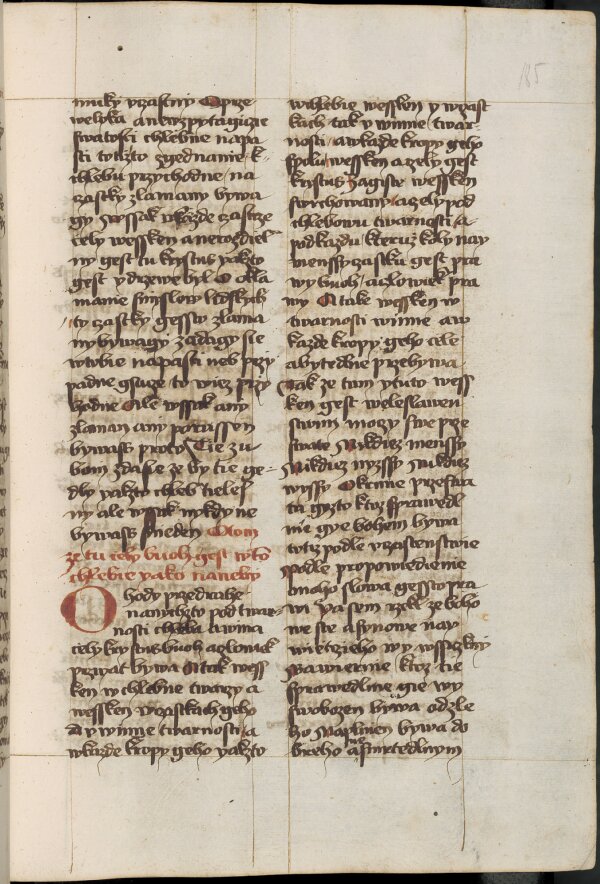 185
muky vzastny O prze
welyka a newzpytagicie
swatosti chlebne napa
sti tutizto zgednanie k
chlebu przychodne na
czastky zlamany bywa
gy wssak wkazde czastce
cely wessken a nerozdiel
ny gest tu krystus yakzto
gest y drzewe byl O okla
manie smyslow lidskych
ty czastky gessto zlama
ny bywagy zadagy sie
wtobie napasti neb przy
padne gsuce to wiez przy
hodne Ale wssak any
zlaman any porussen
bywass proty Tie zu
bom zdasie ze by tie ge
dly yakzto chleb tieles
ny ale wssak nykdy ne
bywass snieden O tom
ze tu cely buoh gest wto
chlebie yako nanebi
O hody przedrahe
namychzto pod twar
nosti chleba a wina
cely krystus buoh a clowiek
przigat bywa A tak wess
ken w chlebne twarzy a
wessken wczastkach geho
A y w winne twarnosti a
w kazde kropy geho yakzto
w chlebie wessken y wczast
kach tak y w winne twar
nosti a w kazde kropy geho
spolu wessken a cely gest
krystus Zagiste wessken
swrchowany a cely pod
chlebowu twarnosti a
pod kazdu kteruz koly nay
menssy czastku gest pra
wy buoh a clowiek pra
wy A take wessken w
twarnosti winne a w
kazde kropy geho cele
a bytedlne przebywa
Tak ze tam y tuto wess
ken gest weleslawen
stwim mocy swe prze
swate Nikdiez menssy
Nikdiez nyzssy Nikdiez
wyssy O krmie przeswa
ta gizto ktoz sprawedl
nie gye bohem bywa
totiz podle vczastenstwie
Podle propowiedienie
onoho slowa gessto pra
wi Ya sem rzekl ze boho
we ste a synowe nay
wietczieho wy wssickni
Nawiernie ktoz tie
sprawedlnie gie wy
swobozen bywa od zle
ho Naplnen bywa do
breho a smrtedlnym